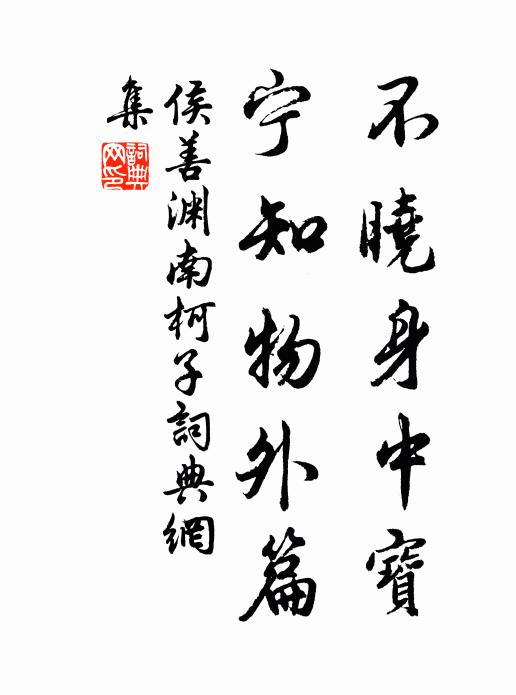 不曉身中寶
宁知物外篇
侯善渊南柯子詞典網
集
詞典網印